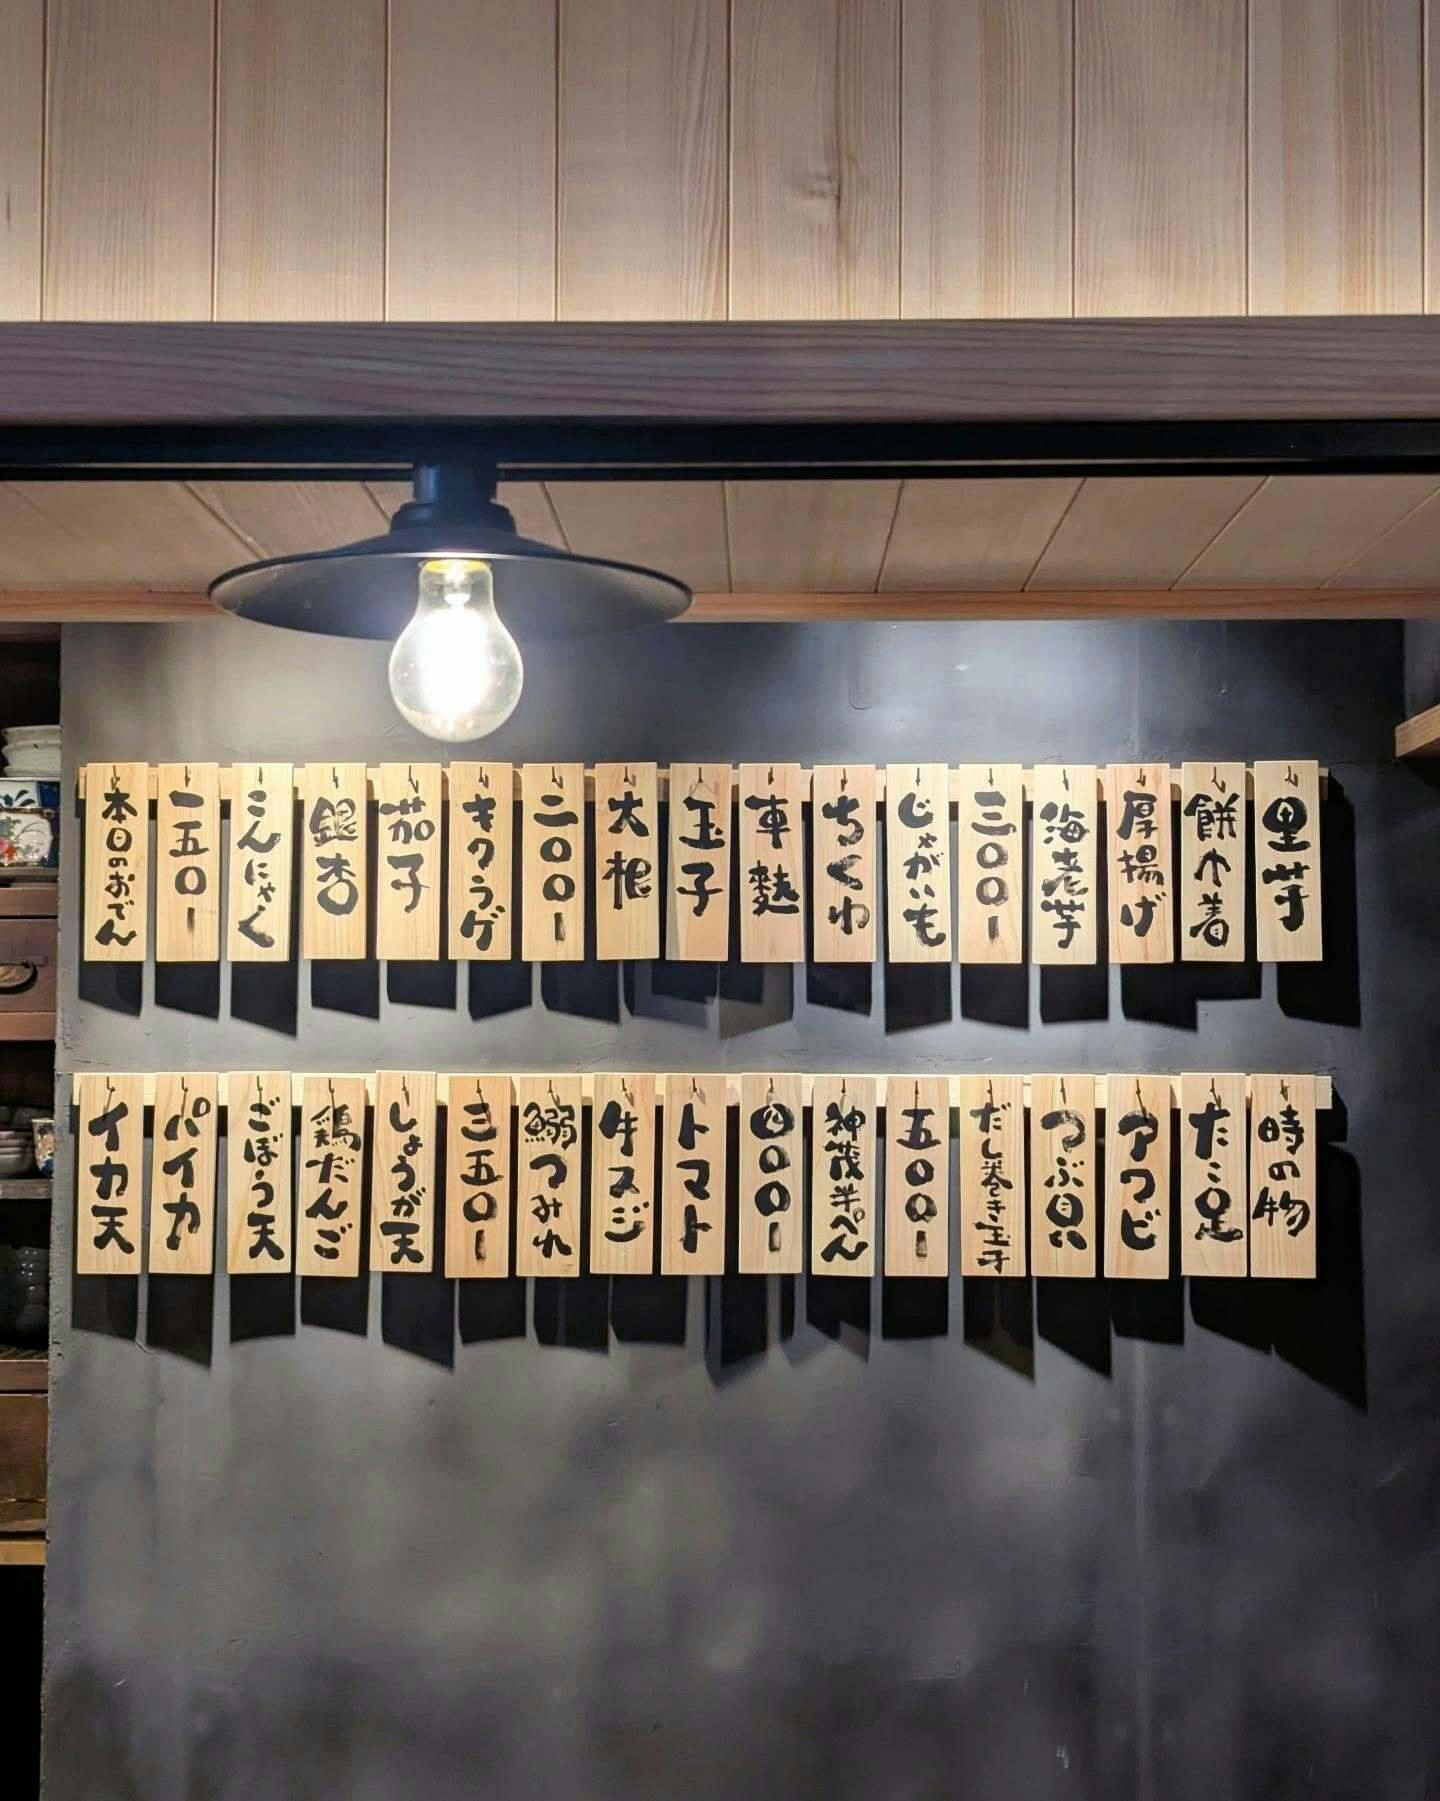 本日のおでん
一五〇ー
こんにゃく
銀杏
茄子
キクラゲ
二〇〇ー
大根
玉子
車麩
ちくわ
じゃがいも
三〇〇ー
海老芋
厚揚げ
餅巾着
里芋
イカ天
パイカ
ごぼう天
鶏だんご
しょうが天
三五〇ー
鰯つみれ
牛スジ
トマト
四〇〇ー
神茂半ぺん
五〇〇ー
だし巻き玉子
つぶ貝
アワビ
たこ足
時の物